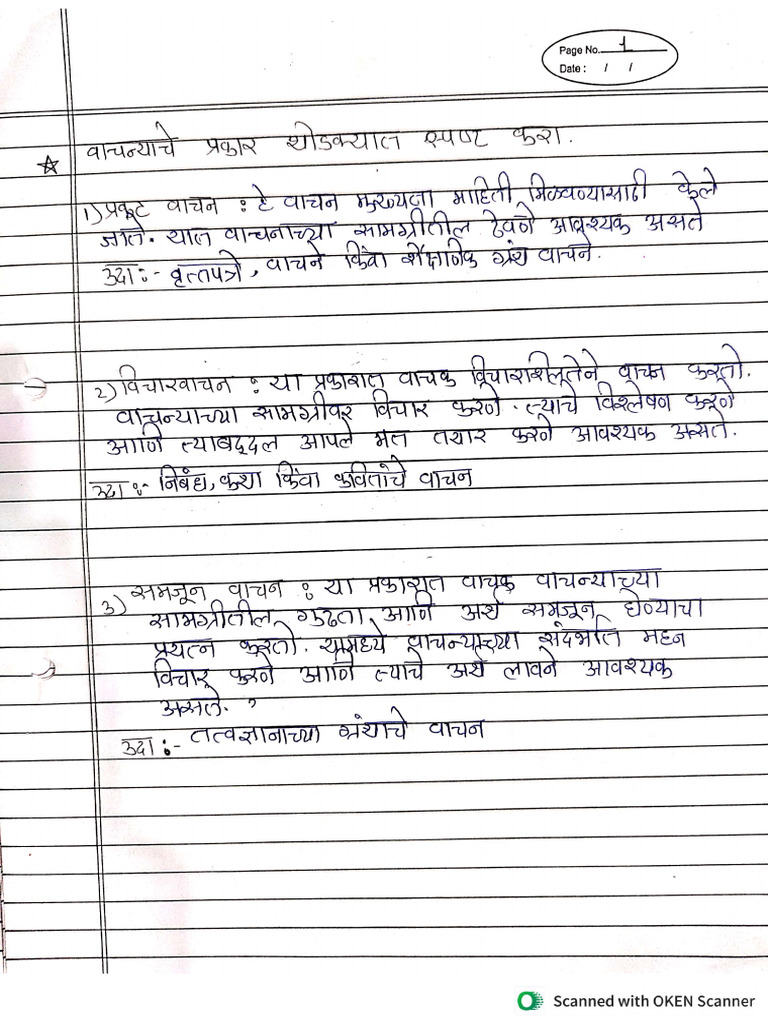 Page No. 1
Date : / /
वाचन्याचे प्रकार थोडक्यात स्पष्ट करा.
1) प्रकट वाचन : हे वाचन मुख्यता माहिती मिळवण्यासाठी केले
जाते. यात वाचनाच्या सामग्रीतील ठेवने आवश्यक असते
उदा :- वृत्तपत्रे, वाचने किंवा शैक्षनिक ग्रंथ वाचने.
2) विचारवाचन : या प्रकारात वाचक विचारशिलतेने वाचन करतो.
वाचन्याच्या सामग्रीवर विचार करने. त्याचे विश्लेषन करने
आणि त्याबद्दल आपले मत तयार करने आवश्यक असते.
उदा :- निबंध, कथा किंवा कवितांचे वाचन
3) समजून वाचन : या प्रकारात वाचक वाचन्याच्या
सामग्रीतील गुढता आणि अर्थ समजून घेण्याचा
प्रयत्न करतो. यामध्ये वाचन्याच्या संदर्भात महन
विचार करने आणि त्याचे अर्थ लावने आवश्यक
असते.
उदा :- तत्वज्ञानाच्या ग्रंथाचे वाचन
Scanned with OKEN Scanner